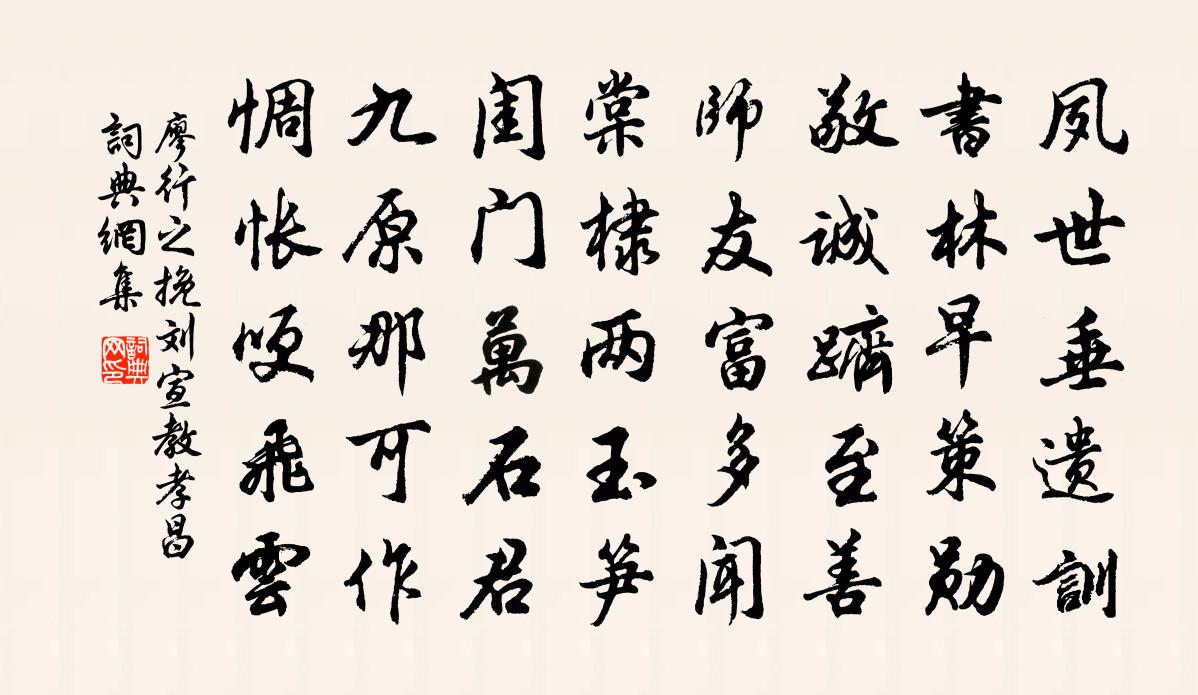 夙世垂遗訓
書林早策勋
敬誠躋至善
师友富多闻
棠棣两玉笋
闺门萬石君
九原那可作
惆怅哽飛雲
廖行之挽刘宣教孝昌
詞典網集
詞典网印